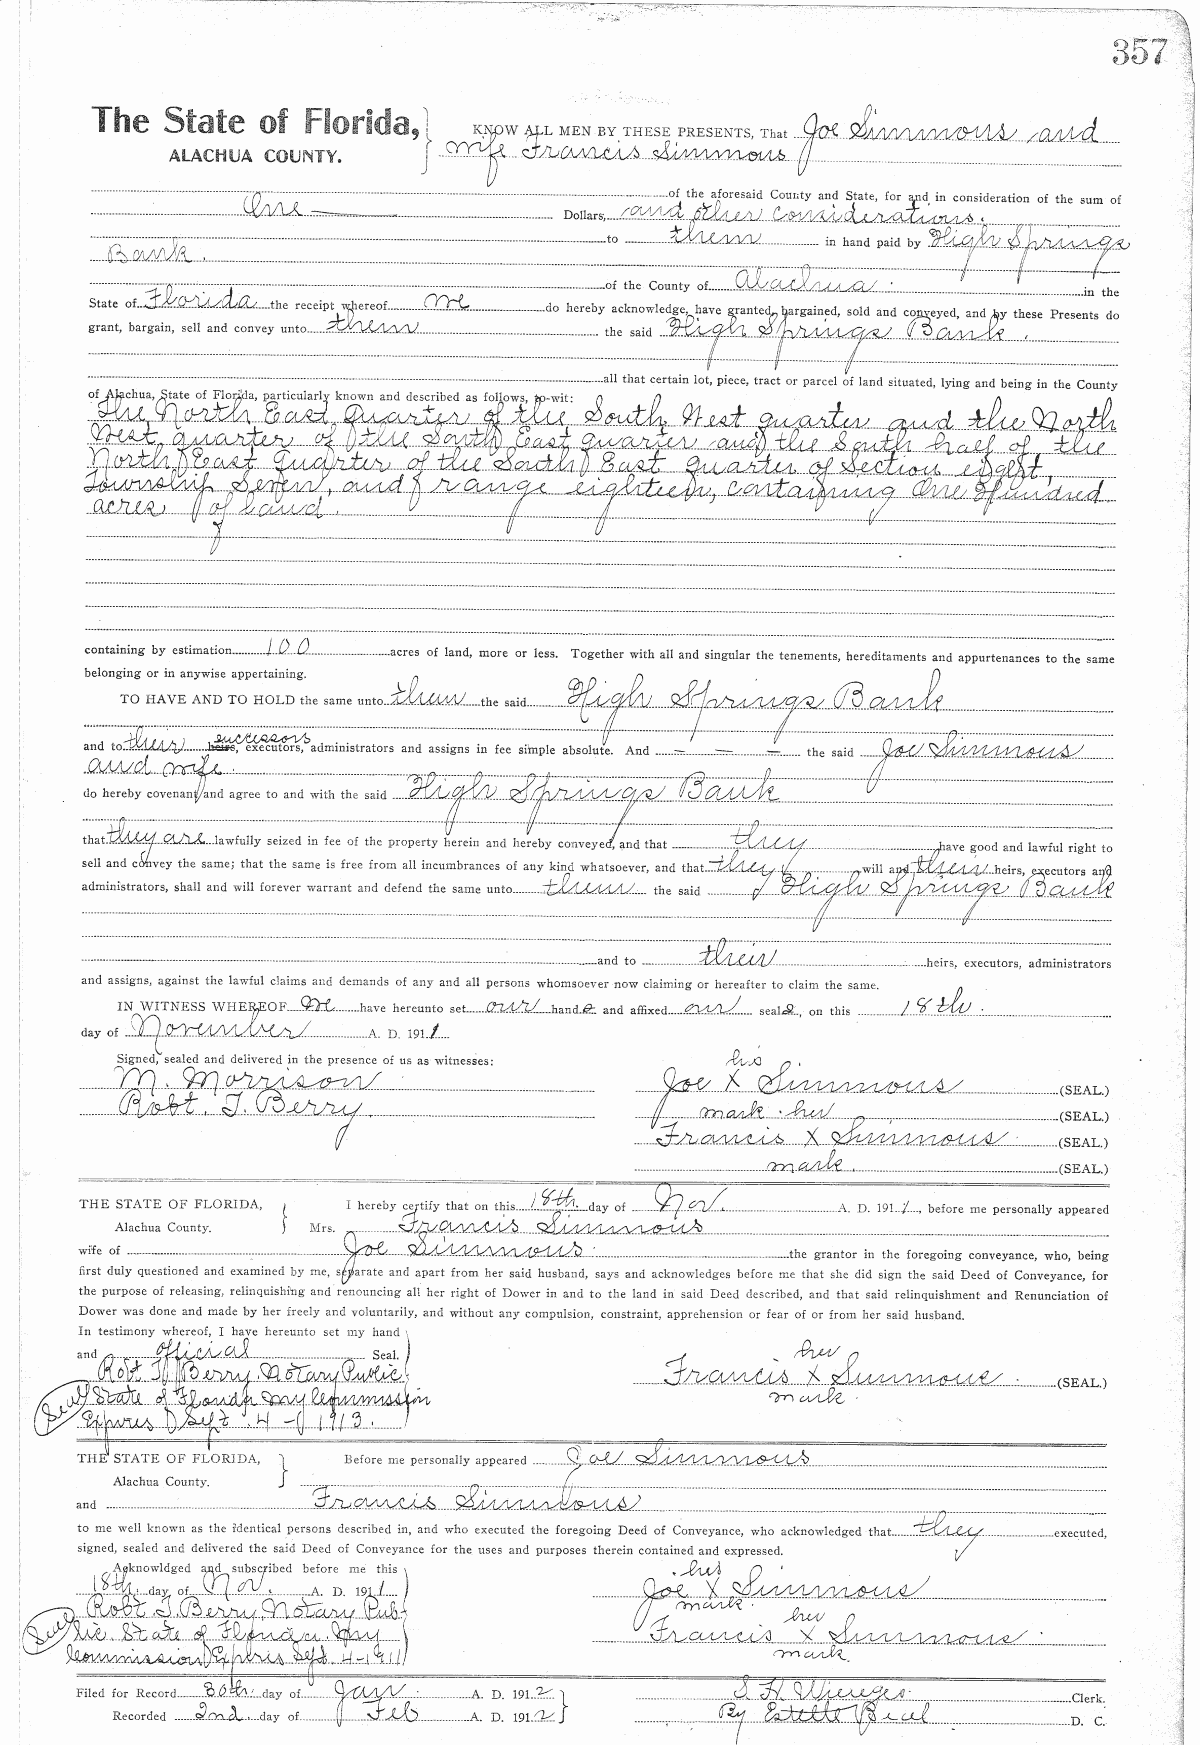 357
The State of Florida,
ALACHUA COUNTY.
KNOW ALL MEN BY THESE PRESENTS, That Joe Simmons and
wife Francis Simmons
of the aforesaid County and State, for and in consideration of the sum of
One Dollars, and other considerations.
to them in hand paid by High Springs
Bank.
of the County of Alachua in the
State of Florida the receipt whereof we do hereby acknowledge, have granted, bargained, sold and conveyed, and by these Presents do
grant, bargain, sell and convey unto them the said High Springs Bank.
all that certain lot, piece, tract or parcel of land situated, lying and being in the County
of Alachua, State of Florida, particularly known and described as follows, to-wit:
The North East quarter of the South West quarter and the North
West quarter of the South East quarter and the South half of the
North East Quarter of the South East quarter of Section eight,
Township Seven, and range eighteen, containing One Hundred
acres of land.
containing by estimation 100 acres of land, more or less. Together with all and singular the tenements, hereditaments and appurtenances to the same
belonging or in anywise appertaining.
TO HAVE AND TO HOLD the same unto them the said High Springs Bank
and to their successors heirs, executors, administrators and assigns in fee simple absolute. And — — — the said Joe Simmons
and wife.
do hereby covenant and agree to and with the said High Springs Bank
that they are lawfully seized in fee of the property herein and hereby conveyed, and that they have good and lawful right to
sell and convey the same; that the same is free from all incumbrances of any kind whatsoever, and that they will and their heirs, executors and
administrators, shall and will forever warrant and defend the same unto them the said High Springs Bank
and to their heirs, executors, administrators
and assigns, against the lawful claims and demands of any and all persons whomsoever now claiming or hereafter to claim the same.
IN WITNESS WHEREOF We have hereunto set our hands and affixed our seals, on this 18th.
day of November A. D. 1911
Signed, sealed and delivered in the presence of us as witnesses:
his
M. Morrison Joe X Simmons (SEAL.)
Robt. T. Berry. mark. her (SEAL.)
Francis X Simmons (SEAL.)
mark. (SEAL.)
THE STATE OF FLORIDA, I hereby certify that on this 18th. day of Nov. A. D. 191 1, before me personally appeared
Alachua County. Mrs. Francis Simmons
wife of Joe Simmons. the grantor in the foregoing conveyance, who, being
first duly questioned and examined by me, separate and apart from her said husband, says and acknowledges before me that she did sign the said Deed of Conveyance, for
the purpose of releasing, relinquishing and renouncing all her right of Dower in and to the land in said Deed described, and that said relinquishment and Renunciation of
Dower was done and made by her freely and voluntarily, and without any compulsion, constraint, apprehension or fear of or from her said husband.
In testimony whereof, I have hereunto set my hand
and official Seal. her
Robt T. Berry Notary Public Francis X Simmons (SEAL.)
Seal State of Florida my Commission mark.
Expires Sept. 4 - 1913.
THE STATE OF FLORIDA, Before me personally appeared Joe Simmons
Alachua County.
and Francis Simmons
to me well known as the identical persons described in, and who executed the foregoing Deed of Conveyance, who acknowledged that they executed,
signed, sealed and delivered the said Deed of Conveyance for the uses and purposes therein contained and expressed.
Acknowldged and subscribed before me this his
18th. day of Nov. A. D. 1911 Joe X Simmons
Robt T. Berry, Notary Pub- mark. her
Seal lic. State of Florida. My Francis X Simmons
Commission Expires Sept. 4-1911 mark
Filed for Record 30th. day of Jan. A. D. 1912 Clerk.
Recorded 2nd. day of Feb A. D. 1912 By Estelle D. C.